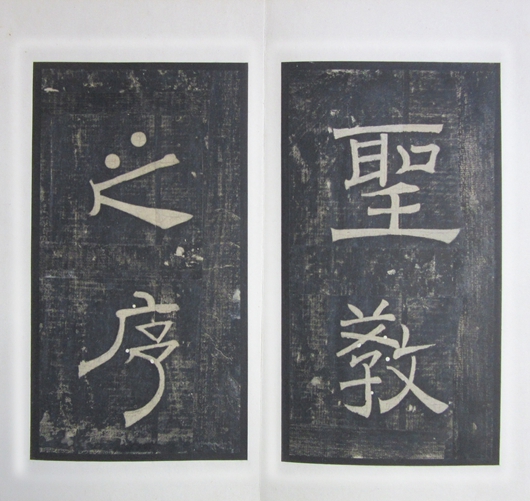 聖教
之序